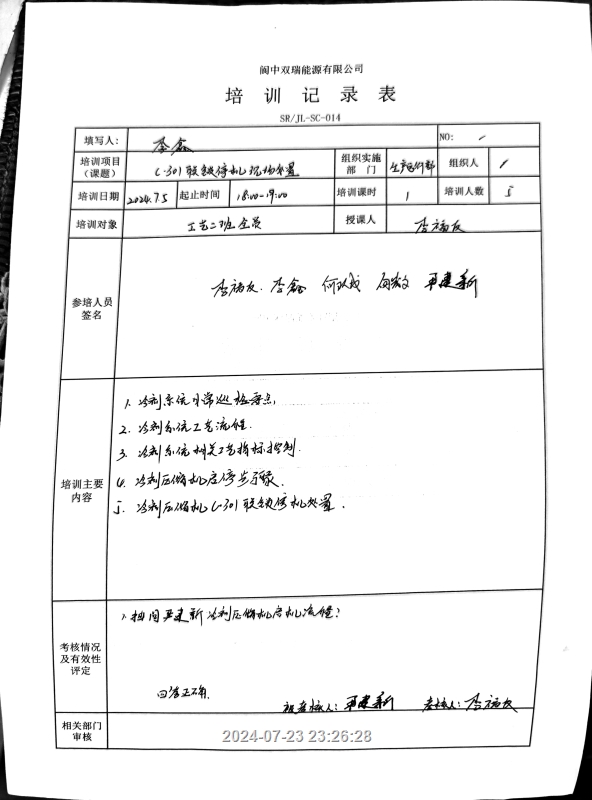 阆中双瑞能源有限公司
培 训 记 录 表
SR/JL-SC-014
填写人: 李鑫 NO: /
培训项目（课题） C-301联锁停机现场处置 组织实施部门 生产运行部 组织人 /
培训日期 2024.7.5 起止时间 18:00-19:00 培训课时 1 培训人数 5
培训对象 工艺二班全员 授课人 李福友
参培人员签名 李福友 李鑫 何 严建新
培训主要内容
1. 冷剂系统日常巡检要点.
2. 冷剂系统工艺流程.
3. 冷剂系统相关工艺指标控制.
4. 冷剂压缩机启停步骤.
5. 冷剂压缩机C-301联锁停机处置.
考核情况及有效性评定
1. 抽问严建新冷剂压缩机启机流程?
回答正确.
被考核人: 严建新 考核人: 李福友
相关部门审核
2024-07-23 23:26:28